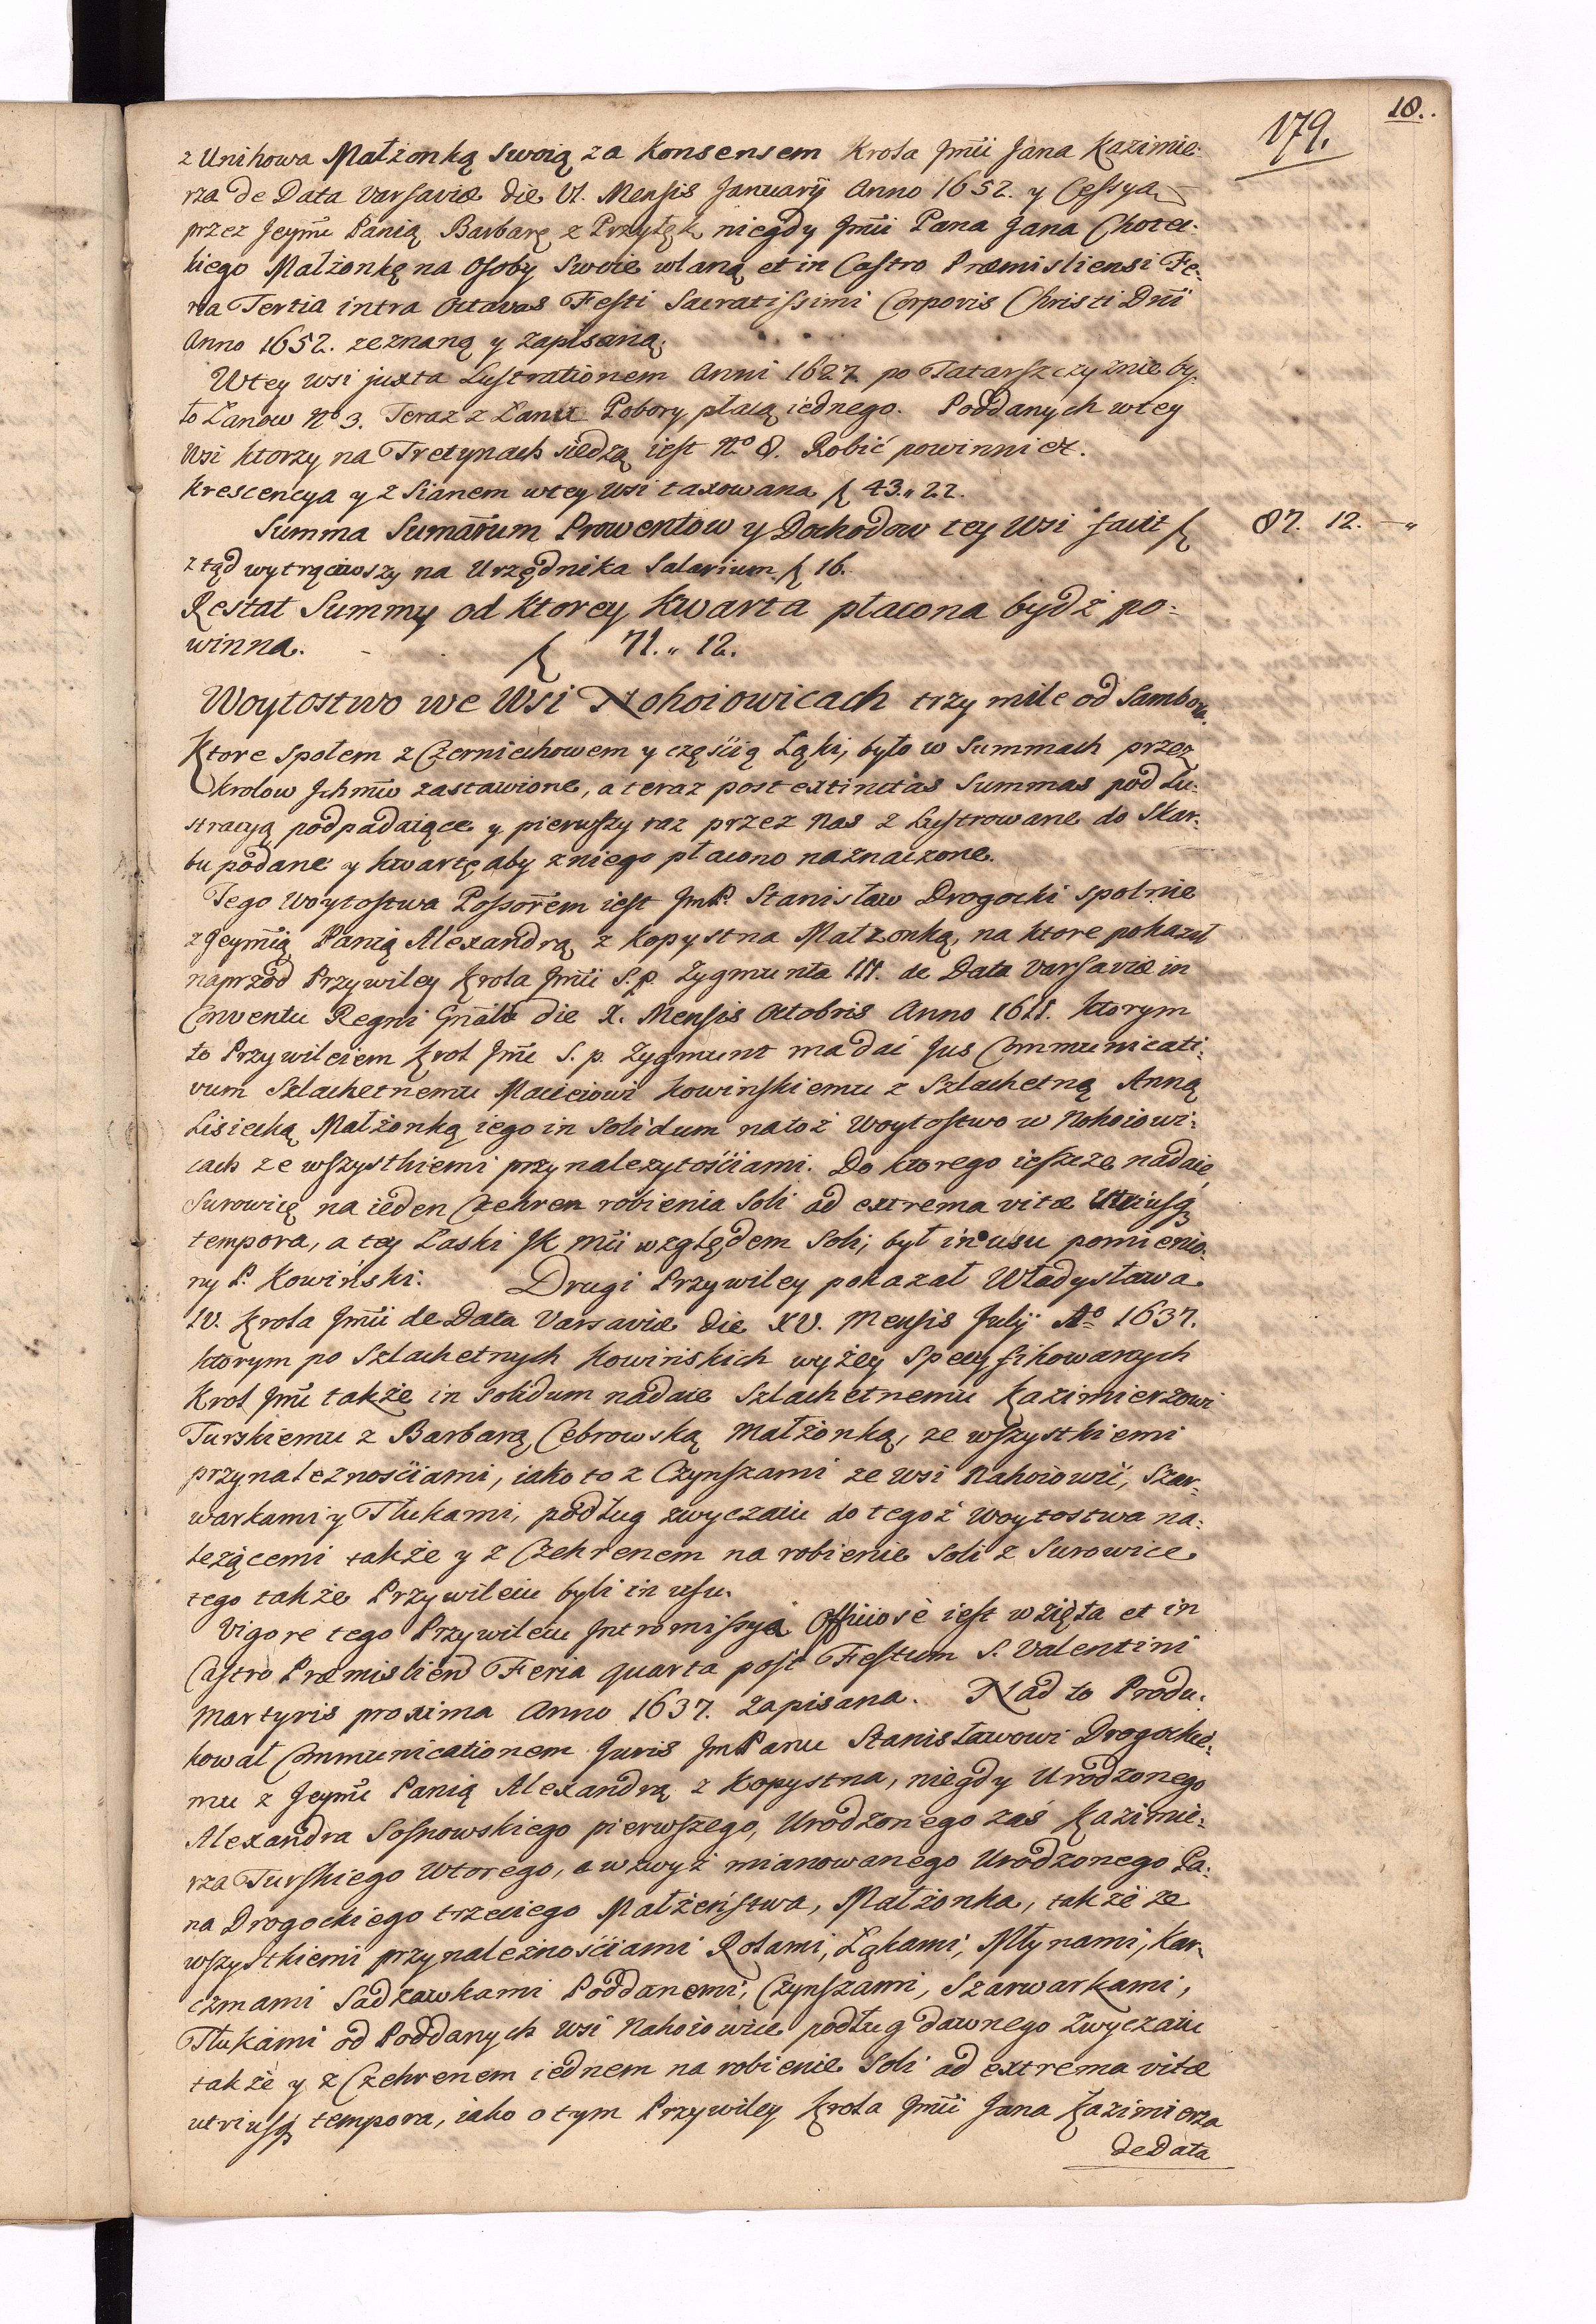 18.
179.
z Unihowa Małżonką swoią za Konsensem Krola Jm̃ci Jana Kazimie-
rza de Data Varsaviæ die VI. Mensis Januarij Anno 1652. y Cessya
przez Jeym̃ć Panią Barbarę z Przyłęk niegdy Jm̃ci Pana Jana Chotec-
kiego Małżonkę na Osoby Swoie wlaną et in Castro Præmisliensi Fe-
ria Tertia intra Octavas Festi Sacratissimi Corporis Christi Dñi
Anno 1652. zeznaną y zapisaną.
Wtey wsi juxta Lustrationem Anni 1627. po Tatarszczyznie by-
ło Łanow No 3. Teraz z Łanu Pobory płacą iednego. Poddanych wtey
Wsi ktorzy na Tretynach siedzą iest No 8. Robić powinni ex.
Krescencya y z Sianem wtey Wsi taxowana f 43.„ 22.
Summa Summarum Prowentow y Dochodow tey Wsi facit f 87. 12. —„
ztąd wytrąciwszy na Urzędnika Salarium f 16.
Restat Summy od ktorey Kwarta płacona bydź po-
winna. f 71.„ 12.
Woytostwo we Wsi Nohoiowicach trzy mile od Sambora.
Ktore społem z Czerniechowem y częścią Łąki, było w Summach przez
Krolow Jchm̃ćw zastawione, a teraz post extinctas Summas pod Lu-
stracyą podpadaiące y pierwszy raz przez Nas zLustrowane do Skar-
bu podane y kwartę aby zniego płacono naznaczone.
Tego Woytostwa Possorem iest JmP. Stanisław Drogocki spolnie
z Jeym̃cią Panią Alexandrą z Kopystna Małzonką, na ktore pokazał
naprzod Przywiley Krola Jm̃ci S.p. Zygmunta III. de Data Varsaviæ in
Conventu Regni Gñali die X. Mensis Octobris Anno 1611. ktorym
to Przywileiem Krol Jm̃ć S. p. Zygmunt nadai Jus Communicati-
vum Szlachetnemu Macieiowi Kowinskiemu z Szlachetną Anną
Lisiecką Małżonką iego in Solidum natoż Woytostwo w Nohoiowi-
cach ze wszystkiemi przynalezytościami. Do ktorego ieszcze nadaie
Surowicę na ieden Czehren robienia Soli ad extrema vitæ Utriusq
tempora, a tey Łaski JK Mci względem Soli, był in usu pomienio-
ny P. Kowiński. Drugi Przywiley pokazał Władysława
IV. Krola Jm̃ci de Data Varsaviæ die XV. Mensis Julij Ao 1637.
ktorym po Szlachetnych Kowińskich wyżey specyfikowanych
Krol Jm̃ć także in solidum nadaie Szlachetnemu Kazimierzowi
Turskiemu z Barbarą Cebrowską Małżonką, ze wszystkiemi
przynaleznościami, iako to z Czynszami ze wsi Nahoiowic, Szar-
warkami y Tłukami, podług zwyczaiu do tegoż Woytostwa na-
leżącemi także y z Czehrenem na robienie Soli z Surowice
tego także Przywileiu byli in usu.
Vigore tego Przywileiu Intromissya Officiosè iest wzięta et in
Castro Præmislien Feria quarta post Festum S. Valentini
Martyris proxima Anno 1637. zapisana. Nad to Produ-
kował Communicationem Juris JmPanu Stanisławowi Drogockie-
mu z Jeym̃ć Panią Alexandrą z Kopystna, niegdy Urodzonego
Alexandra Sosnowskiego pierwszego, Urodzonego zaś Kazimie-
rza Turskiego wtorego, a wzwyż mianowanego Urodzonego Pa-
na Drogockiego trzeciego Małżeństwa, Małżonka, także ze
wszystkiemi przynależnościami Rolami, Łąkami, Młynami, Kar-
czmami Sadzawkami Poddanemi, Czynszami, Szarwarkami,
Tłukami od Poddanych wsi Nahoiowice podług dawnego zwyczaiu
także y z Czehrenem iednem na robienie Soli ad extrema vitæ
utriusq tempora, iako o tym Przywiley Krola Jm̃ci Jana Kazimierza
de Data